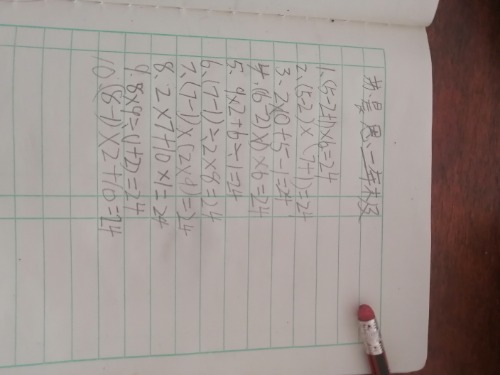 二年级
1.(5-2+1)×6=24
2.(5-2)×(7+1)=24
3.2×10+5-1=24
4.(6-2)×1×6=24
5.9×2+6÷1=24
6.(7-1)÷2×8=24
7.(7-1)×
8.2×7+10×1=24
9.8×9÷(1+2)=24
10.(8-1)×2+10=24